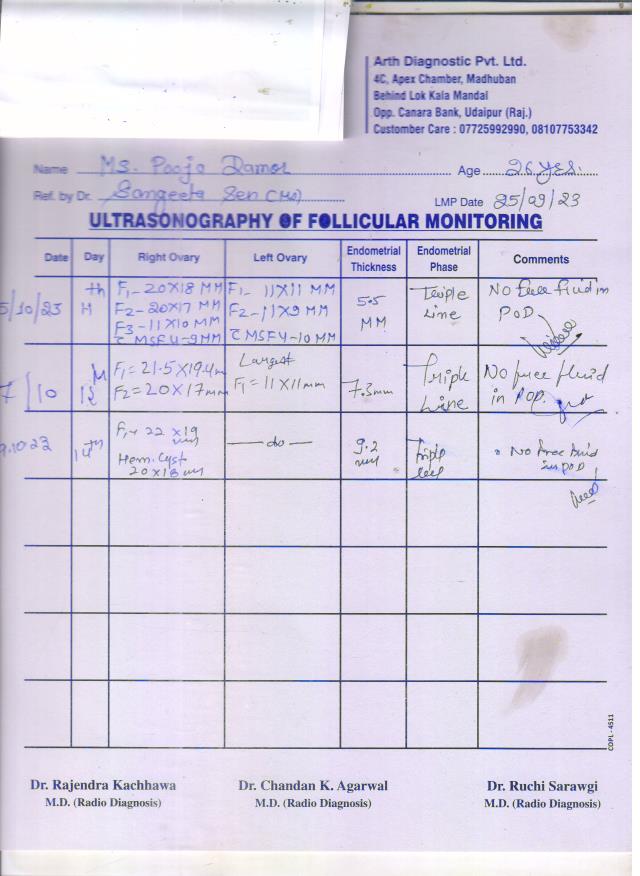 Arth Diagnostic Pvt. Ltd.
4C, Apex Chamber, Madhuban
Behind Lok Kala Mandal
Opp. Canara Bank, Udaipur (Raj.)
Customber Care : 07725992990, 08107753342
Name Ms. Pooja Damor Age 26 yrs.
Ref. by Dr. Sangeeta Sen (MS) LMP Date 25/09/23
ULTRASONOGRAPHY OF FOLLICULAR MONITORING
Date Day Right Ovary Left Ovary Endometrial Thickness Endometrial Phase Comments
5/10/23 11th F1-20X18 MM F1-11X11 MM 5.5 MM Triple Line No free fluid in POD
F2-20X17 MM F2-11X9 MM
F3-11X10 MM
C MSF4-9MM C MSF4-10 MM
7/10 F1=21.5X19.4m Largest 7.3mm Triple Line No free fluid in POD.
F2=20X17mm F1=11X11mm
9.10.23 14th F1-22X19 mm do 9.2 mm Triple No free fluid in POD
Hem. Cyst
20X18mm
COPL-4511
Dr. Rajendra Kachhawa Dr. Chandan K. Agarwal Dr. Ruchi Sarawgi
M.D. (Radio Diagnosis) M.D. (Radio Diagnosis) M.D. (Radio Diagnosis)